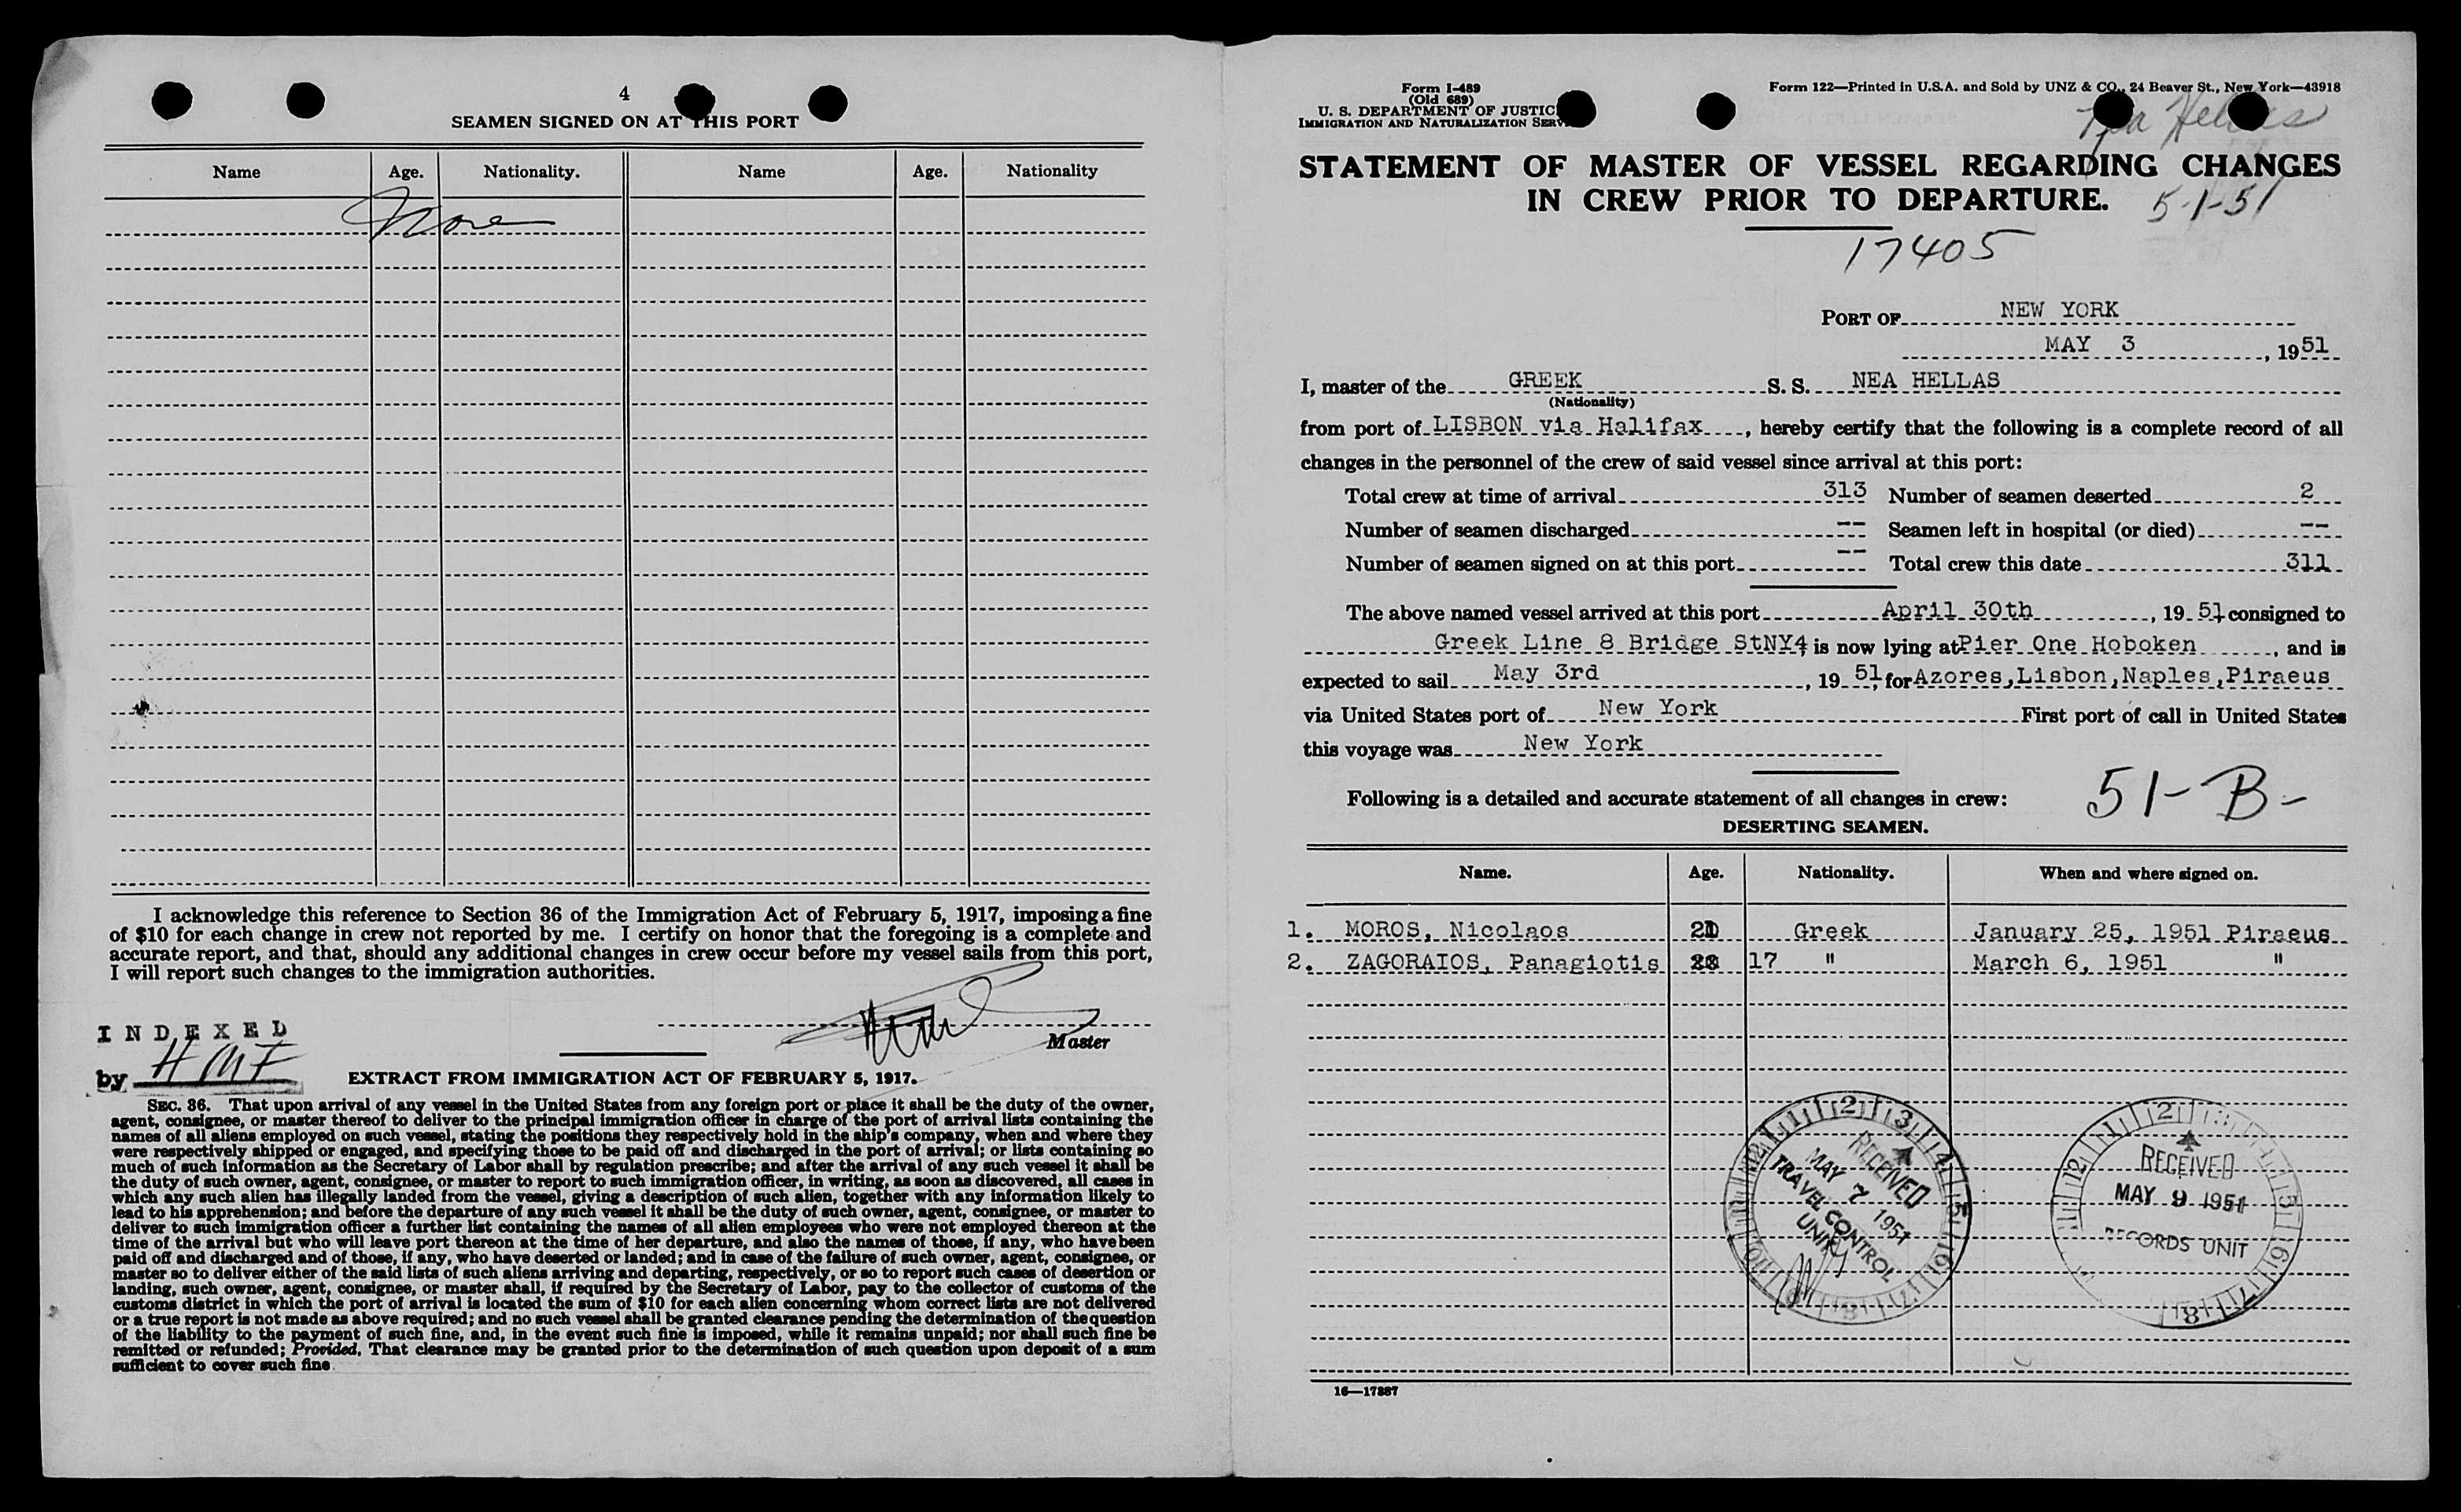 4
SEAMEN SIGNED ON AT THIS PORT
Name Age. Nationality. Name Age. Nationality
None
I acknowledge this reference to Section 36 of the Immigration Act of February 5, 1917, imposing a fine
of $10 for each change in crew not reported by me. I certify on honor that the foregoing is a complete and
accurate report, and that, should any additional changes in crew occur before my vessel sails from this port,
I will report such changes to the immigration authorities.
Master
INDEXED
by HMF
EXTRACT FROM IMMIGRATION ACT OF FEBRUARY 5, 1917.
SEC. 36. That upon arrival of any vessel in the United States from any foreign port or place it shall be the duty of the owner,
agent, consignee, or master thereof to deliver to the principal immigration officer in charge of the port of arrival lists containing the
names of all aliens employed on such vessel, stating the positions they respectively hold in the ship's company, when and where they
were respectively shipped or engaged, and specifying those to be paid off and discharged in the port of arrival; or lists containing so
much of such information as the Secretary of Labor shall by regulation prescribe; and after the arrival of any such vessel it shall be
the duty of such owner, agent, consignee, or master to report to such immigration officer, in writing, as soon as discovered, all cases in
which any such alien has illegally landed from the vessel, giving a description of such alien, together with any information likely to
lead to his apprehension; and before the departure of any such vessel it shall be the duty of such owner, agent, consignee, or master to
deliver to such immigration officer a further list containing the names of all alien employees who were not employed thereon at the
time of the arrival but who will leave port thereon at the time of her departure, and also the names of those, if any, who have been
paid off and discharged and of those, if any, who have deserted or landed; and in case of the failure of such owner, agent, consignee, or
master so to deliver either of the said lists of such aliens arriving and departing, respectively, or so to report such cases of desertion or
landing, such owner, agent, consignee, or master shall, if required by the Secretary of Labor, pay to the collector of customs of the
customs district in which the port of arrival is located the sum of $10 for each alien concerning whom correct lists are not delivered
or a true report is not made as above required; and no such vessel shall be granted clearance pending the determination of the question
of the liability to the payment of such fine, and, in the event such fine is imposed, while it remains unpaid; nor shall such fine be
remitted or refunded; Provided, That clearance may be granted prior to the determination of such question upon deposit of a sum
sufficient to cover such fine.
Form I-489
(Old 689)
U. S. DEPARTMENT OF JUSTIC
IMMIGRATION AND NATURALIZATION SERV
Form 122—Printed in U.S.A. and Sold by UNZ & CO., 24 Beaver St., New York—43918
Hellas
STATEMENT OF MASTER OF VESSEL REGARDING CHANGES
IN CREW PRIOR TO DEPARTURE.
5-1-51
17405
PORT OF NEW YORK
MAY 3, 1951
I, master of the GREEK S. S. NEA HELLAS
(Nationality)
from port of LISBON via Halifax, hereby certify that the following is a complete record of all
changes in the personnel of the crew of said vessel since arrival at this port:
Total crew at time of arrival 313 Number of seamen deserted 2
Number of seamen discharged -- Seamen left in hospital (or died) --
Number of seamen signed on at this port -- Total crew this date 311
The above named vessel arrived at this port April 30th, 1951 consigned to
Greek Line 8 Bridge StNY4 is now lying at Pier One Hoboken, and is
expected to sail May 3rd, 1951, for Azores, Lisbon, Naples, Piraeus
via United States port of New York First port of call in United States
this voyage was New York
Following is a detailed and accurate statement of all changes in crew:
51-B-
DESERTING SEAMEN.
Name. Age. Nationality. When and where signed on.
1. MOROS, Nicolaos Greek January 25, 1951 Piraeus
2. ZAGORAIOS, Panagiotis 17 " March 6, 1951 "
RECEIVED
MAY 7 1951
TRAVEL CONTROL
UNIT
RECEIVED
MAY 9 1951
RECORDS UNIT
16—17887